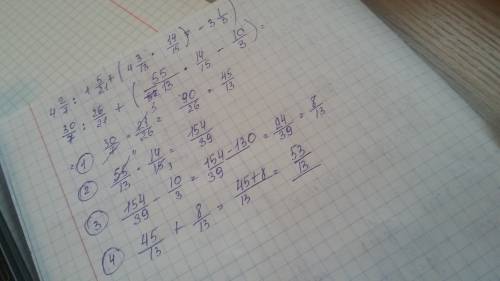 4 2/7 : 1 5/21 + (4 3/13 · 14/15 - 3 1/3)
30/7 : 26/21 + (55/13 · 14/15 - 10/3) =
= ① 30/7 · 21/26 = 90/26 = 45/13
② 55/13 · 14/15 = 154/39
③ 154/39 - 10/3 = 154-130/39 = 24/39 = 8/13
④ 45/13 + 8/13 = 45+8/13 = 53/13